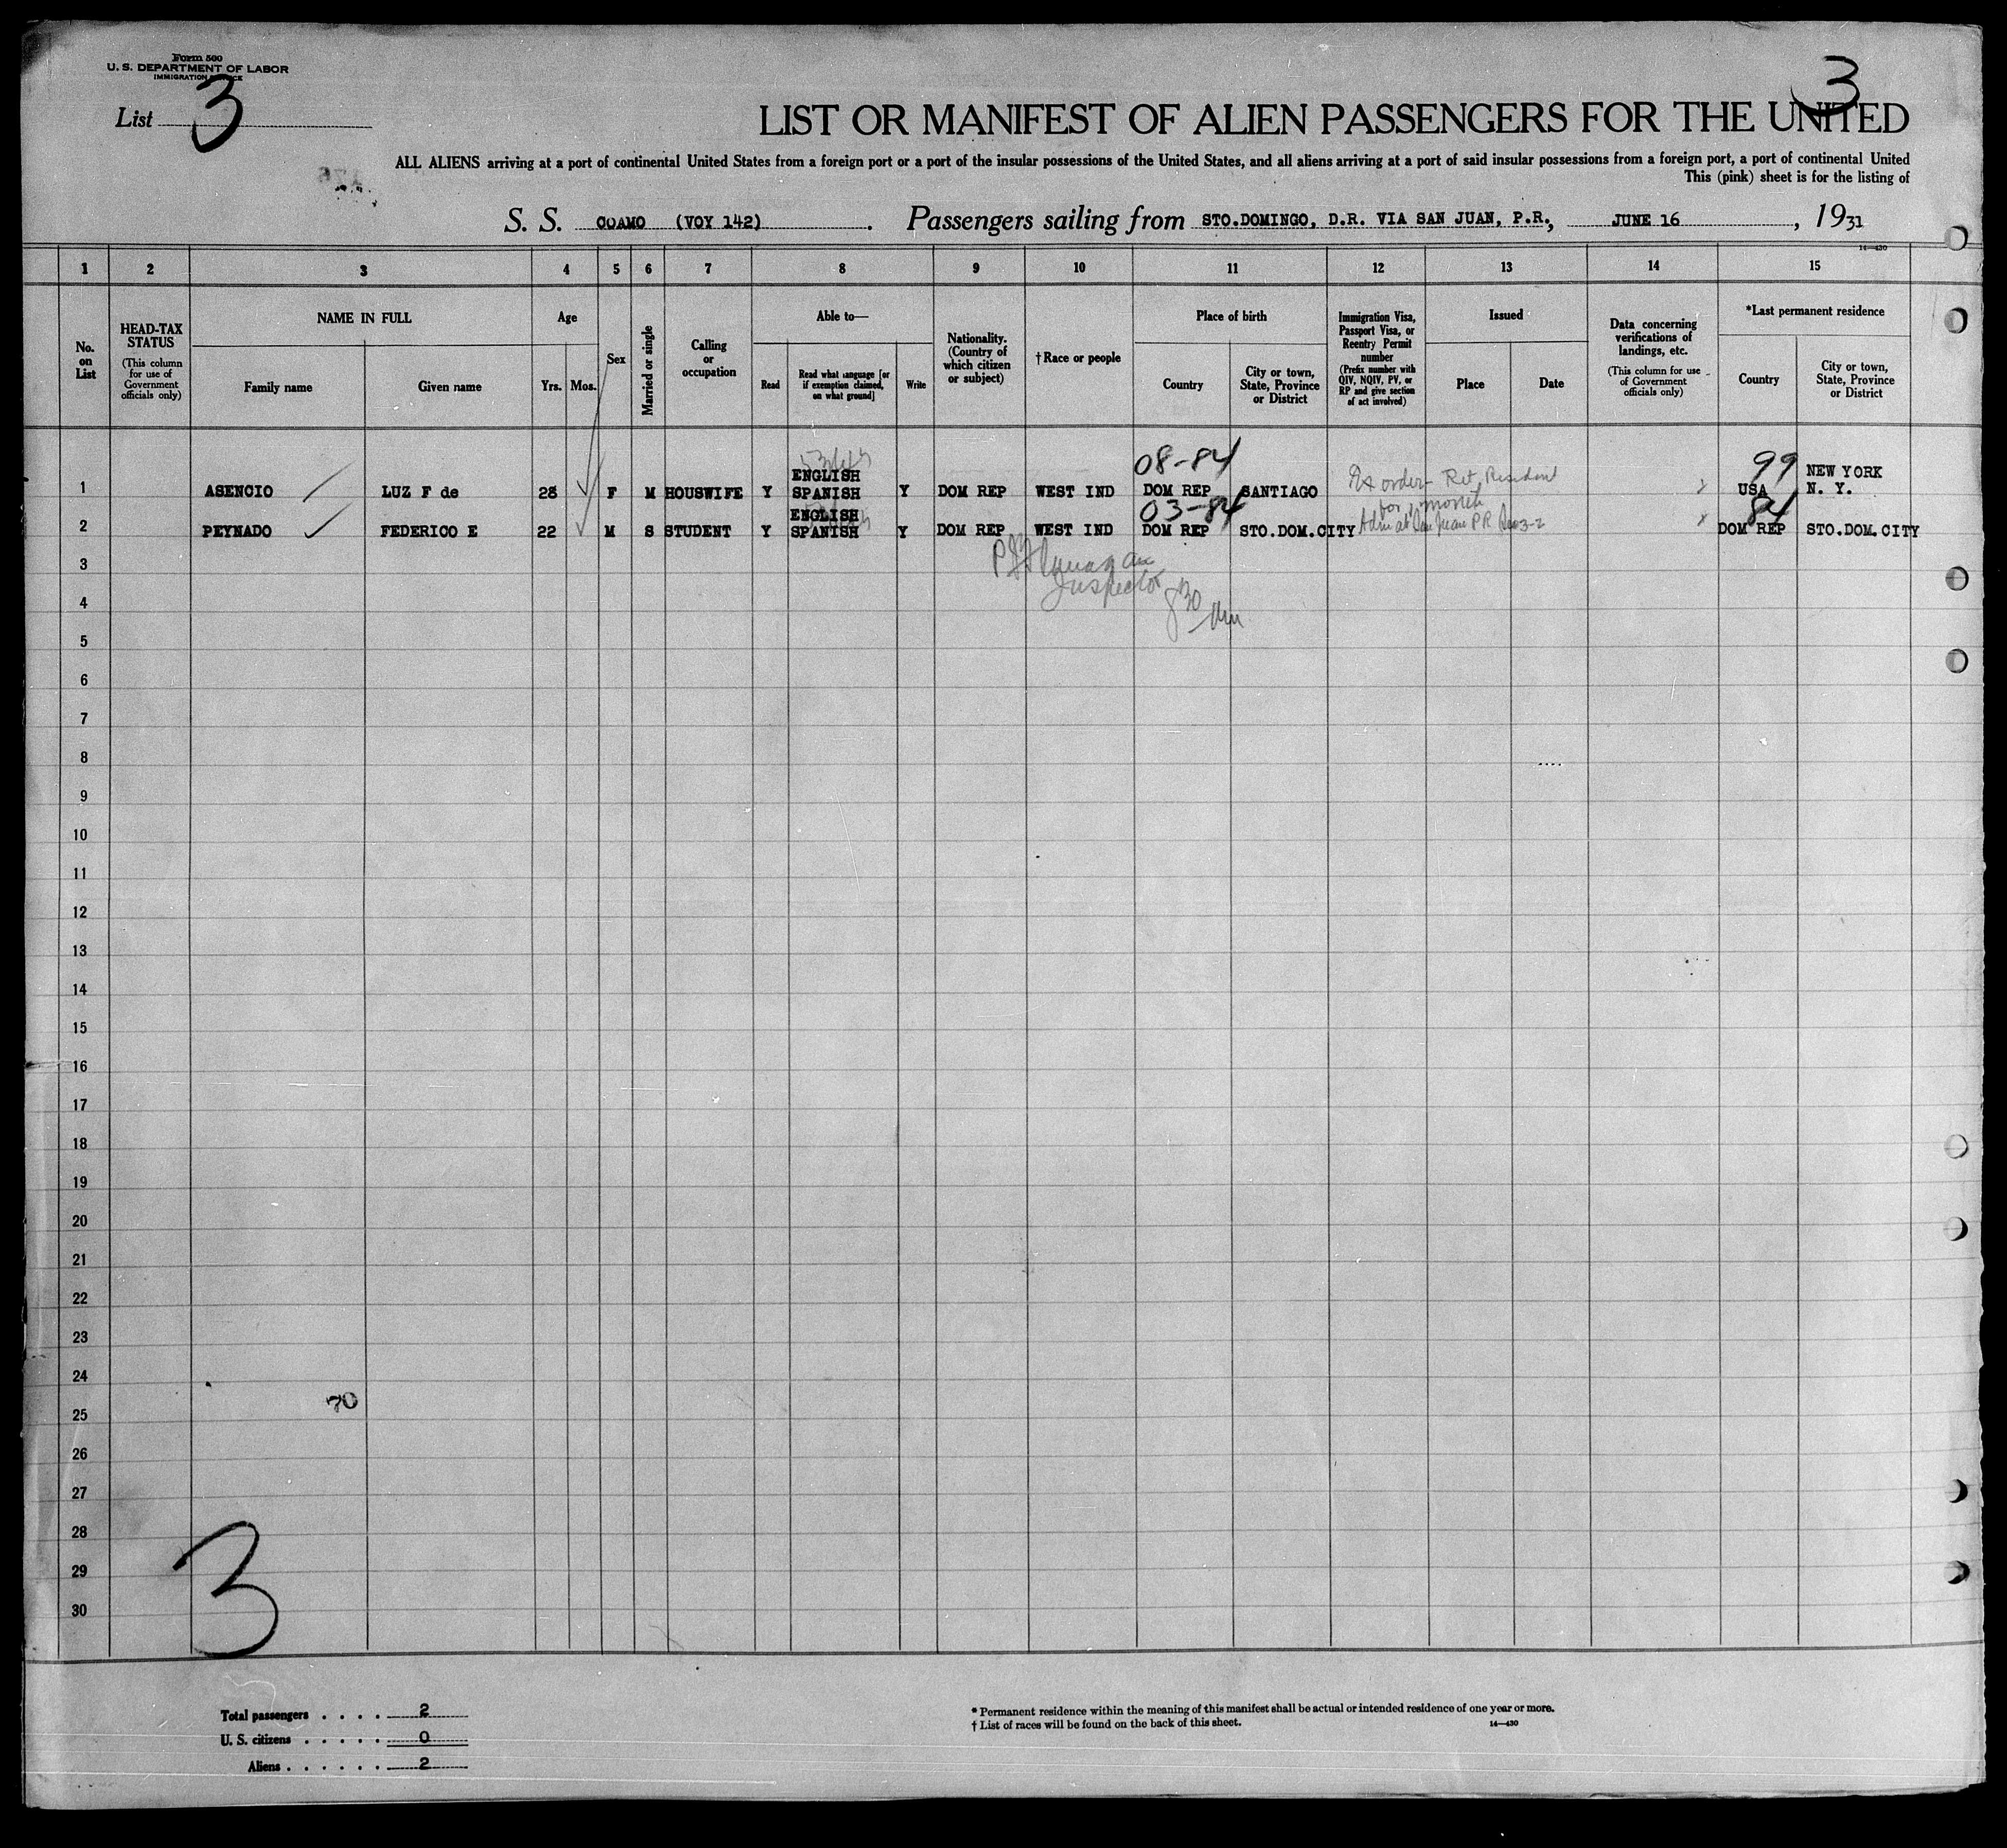 Form 500
U. S. DEPARTMENT OF LABOR
IMMIGRATION SERVICE
List 3
3
LIST OR MANIFEST OF ALIEN PASSENGERS FOR THE UNITED
ALL ALIENS arriving at a port of continental United States from a foreign port or a port of the insular possessions of the United States, and all aliens arriving at a port of said insular possessions from a foreign port, a port of continental United
This (pink) sheet is for the listing of
S. S. COAMO (VOY 142). Passengers sailing from STO.DOMINGO, D.R. VIA SAN JUAN, P.R., JUNE 16, 1931
14—430
1 2 3 4 5 6 7 8 9 10 11 12 13 14 15
No. on List
HEAD-TAX STATUS
(This column for use of Government officials only)
NAME IN FULL
Family name
Given name
Age
Yrs.
Mos.
Sex
Married or single
Calling or occupation
Able to—
Read
Read what language [or if exemption claimed, on what ground]
Write
Nationality. (Country of which citizen or subject)
†Race or people
Place of birth
Country
City or town, State, Province or District
Immigration Visa, Passport Visa, or Reentry Permit number
(Prefix number with QIV, NQIV, PV, or RP and give section of act involved)
Issued
Place
Date
Data concerning verifications of landings, etc.
(This column for use of Government officials only)
*Last permanent residence
Country
City or town, State, Province or District
08-84 99
1 ASENCIO LUZ F de 28 F M HOUSWIFE Y ENGLISH SPANISH Y DOM REP WEST IND DOM REP SANTIAGO Ex order Ret Resident USA NEW YORK N. Y.
03-84 84
2 PEYNADO FEDERICO E 22 M S STUDENT Y ENGLISH SPANISH Y DOM REP WEST IND DOM REP STO.DOM.CITY Adm at San Juan PR 3-2 DOM REP STO.DOM.CITY
3
Inspector
4
8 30
5
6
7
8
9
10
11
12
13
14
15
16
17
18
19
20
21
22
23
24
70
25
26
27
28
29
30
3
Total passengers . . . . 2
U. S. citizens . . . . . 0
Aliens . . . . . . 2
* Permanent residence within the meaning of this manifest shall be actual or intended residence of one year or more.
† List of races will be found on the back of this sheet.
14—430